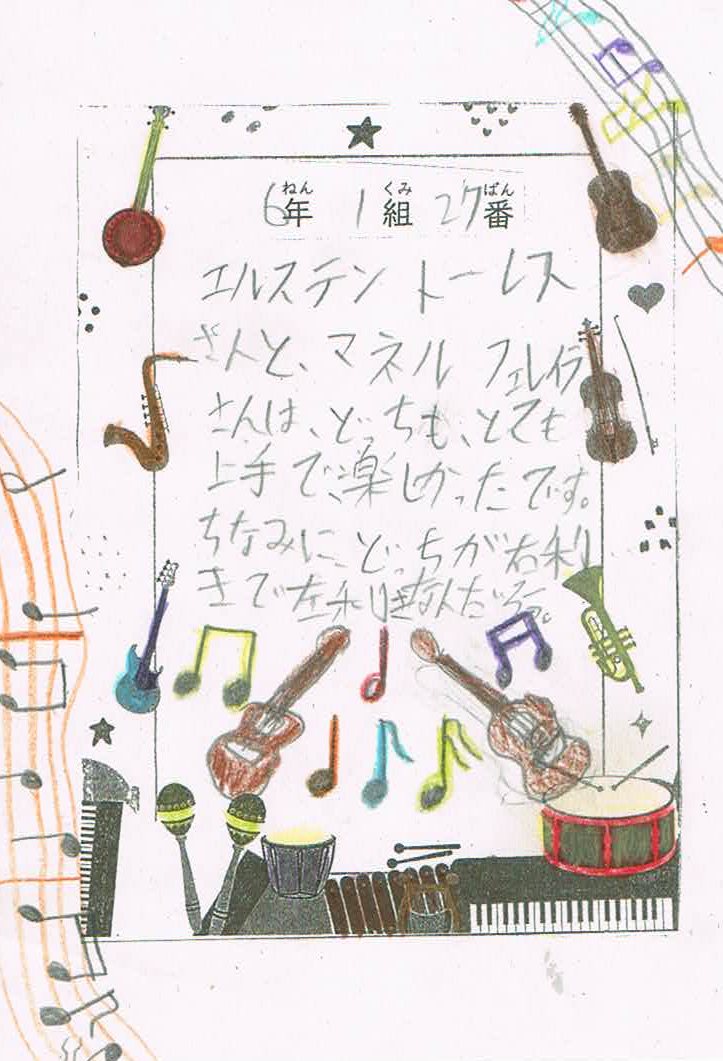 ねん くみ ばん
6年 1組 27番
エルステン トーレス
さんと、マネル フェレイラ
さんは、どっちも、とても
上手で、楽しかったです。
ちなみに、どっちが右利
きで左利きなんだろう。